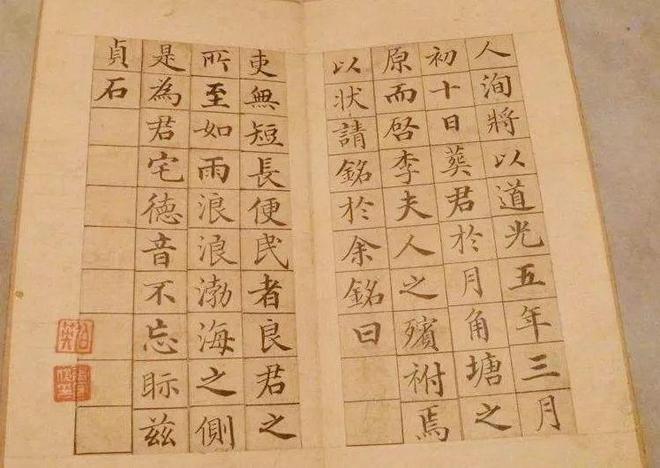 人洵將以道光五年三月
初十日葬君於月角塘之
原而啓李夫人之殯祔焉
以狀請銘於余銘曰
吏無短長便民者良君之
所至如雨浪浪渤海之側
是為君宅德音不忘眎茲
貞石